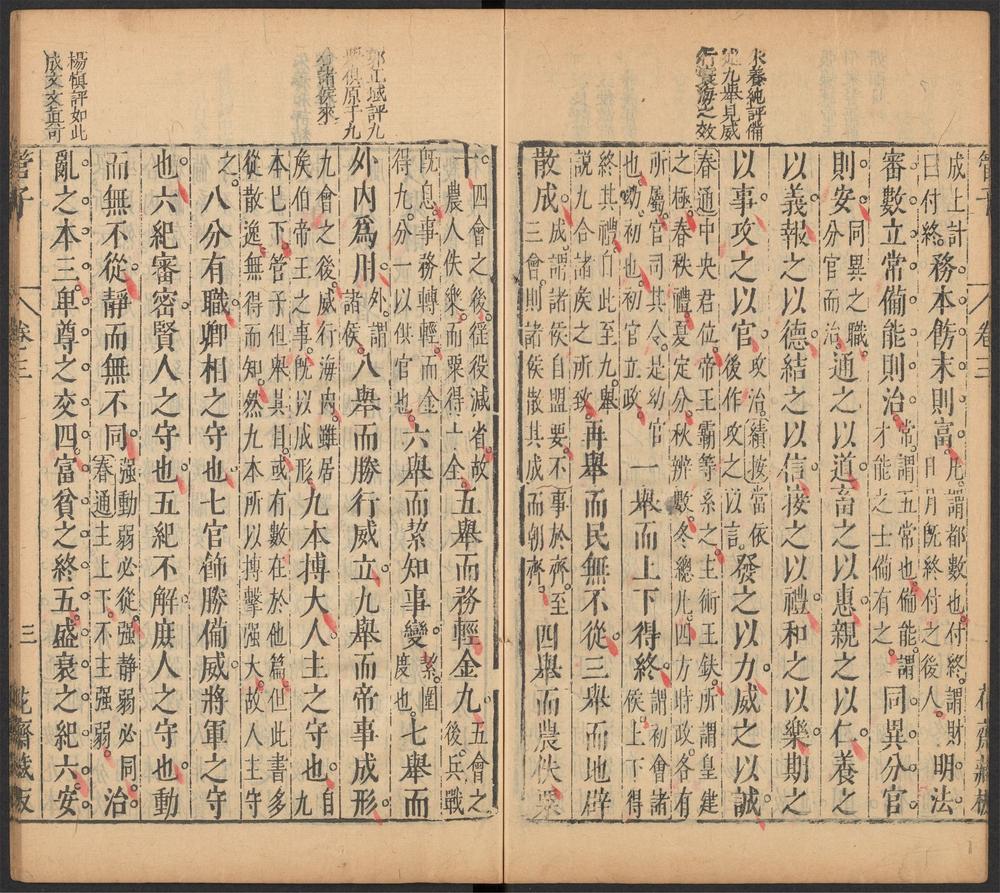 朱養純評備
述九舉見威
行寰海之效
管子
卷三
花齋藏板
成上計曰付終務本飭末則富凡謂都數也付終謂財日月旣終付之後人明法
審數立常備能則治常謂五常也備能謂才能之士備有之同異分官
則安同異之職分官而治通之以道畜之以惠親之以仁養之
以義報之以德結之以信接之以禮和之以樂期之
以事攻之以官攻治績按當依後作攻之以言發之以力威之以誠
春通中央君位帝王霸等系之主術王鈇所謂皇建
之極春秩禮夏定分秋辨數冬總凡四方時政各有
所屬官司其令是幼官一舉而上下得終謂初會諸侯上下得
也㓜初也初官立政
終其禮自此至九舉
說九合諸矦之所致再舉而民無不從三舉而地辟
散成成謂諸侯自盟要不事於齊至三會則諸侯散其成而朝齊四舉而農佚粟
郭正域評九
舉俱原于九
會諸侯來
十四會之後徑役減省故農人佚樂而粟得十全五舉而務輕金九五會之後兵戰
旣息事務轉輕而金得九分一以供官也六舉而絜知事變絜圍度也七舉而
外内爲用外謂諸侯八舉而勝行威立九舉而帝事成形
九會之後威行海内雖居矦伯帝王之事旣以成形九本搏大人主之守也自九
本已下管子但舉其目或有數在於他篇但此書多
從散逸無得而知然九本所以搏擊强大故人主守
之八分有職卿相之守也七官飾勝備威將軍之守
也六紀審密賢人之守也五紀不解庶人之守也動
而無不從靜而無不同强動弱必從强静弱必同春通主上下不主强弱治
亂之本三卑尊之交四富貧之終五盛衰之紀六安
楊慎評如此
成文文真可
管子
卷三
三
花齋藏板